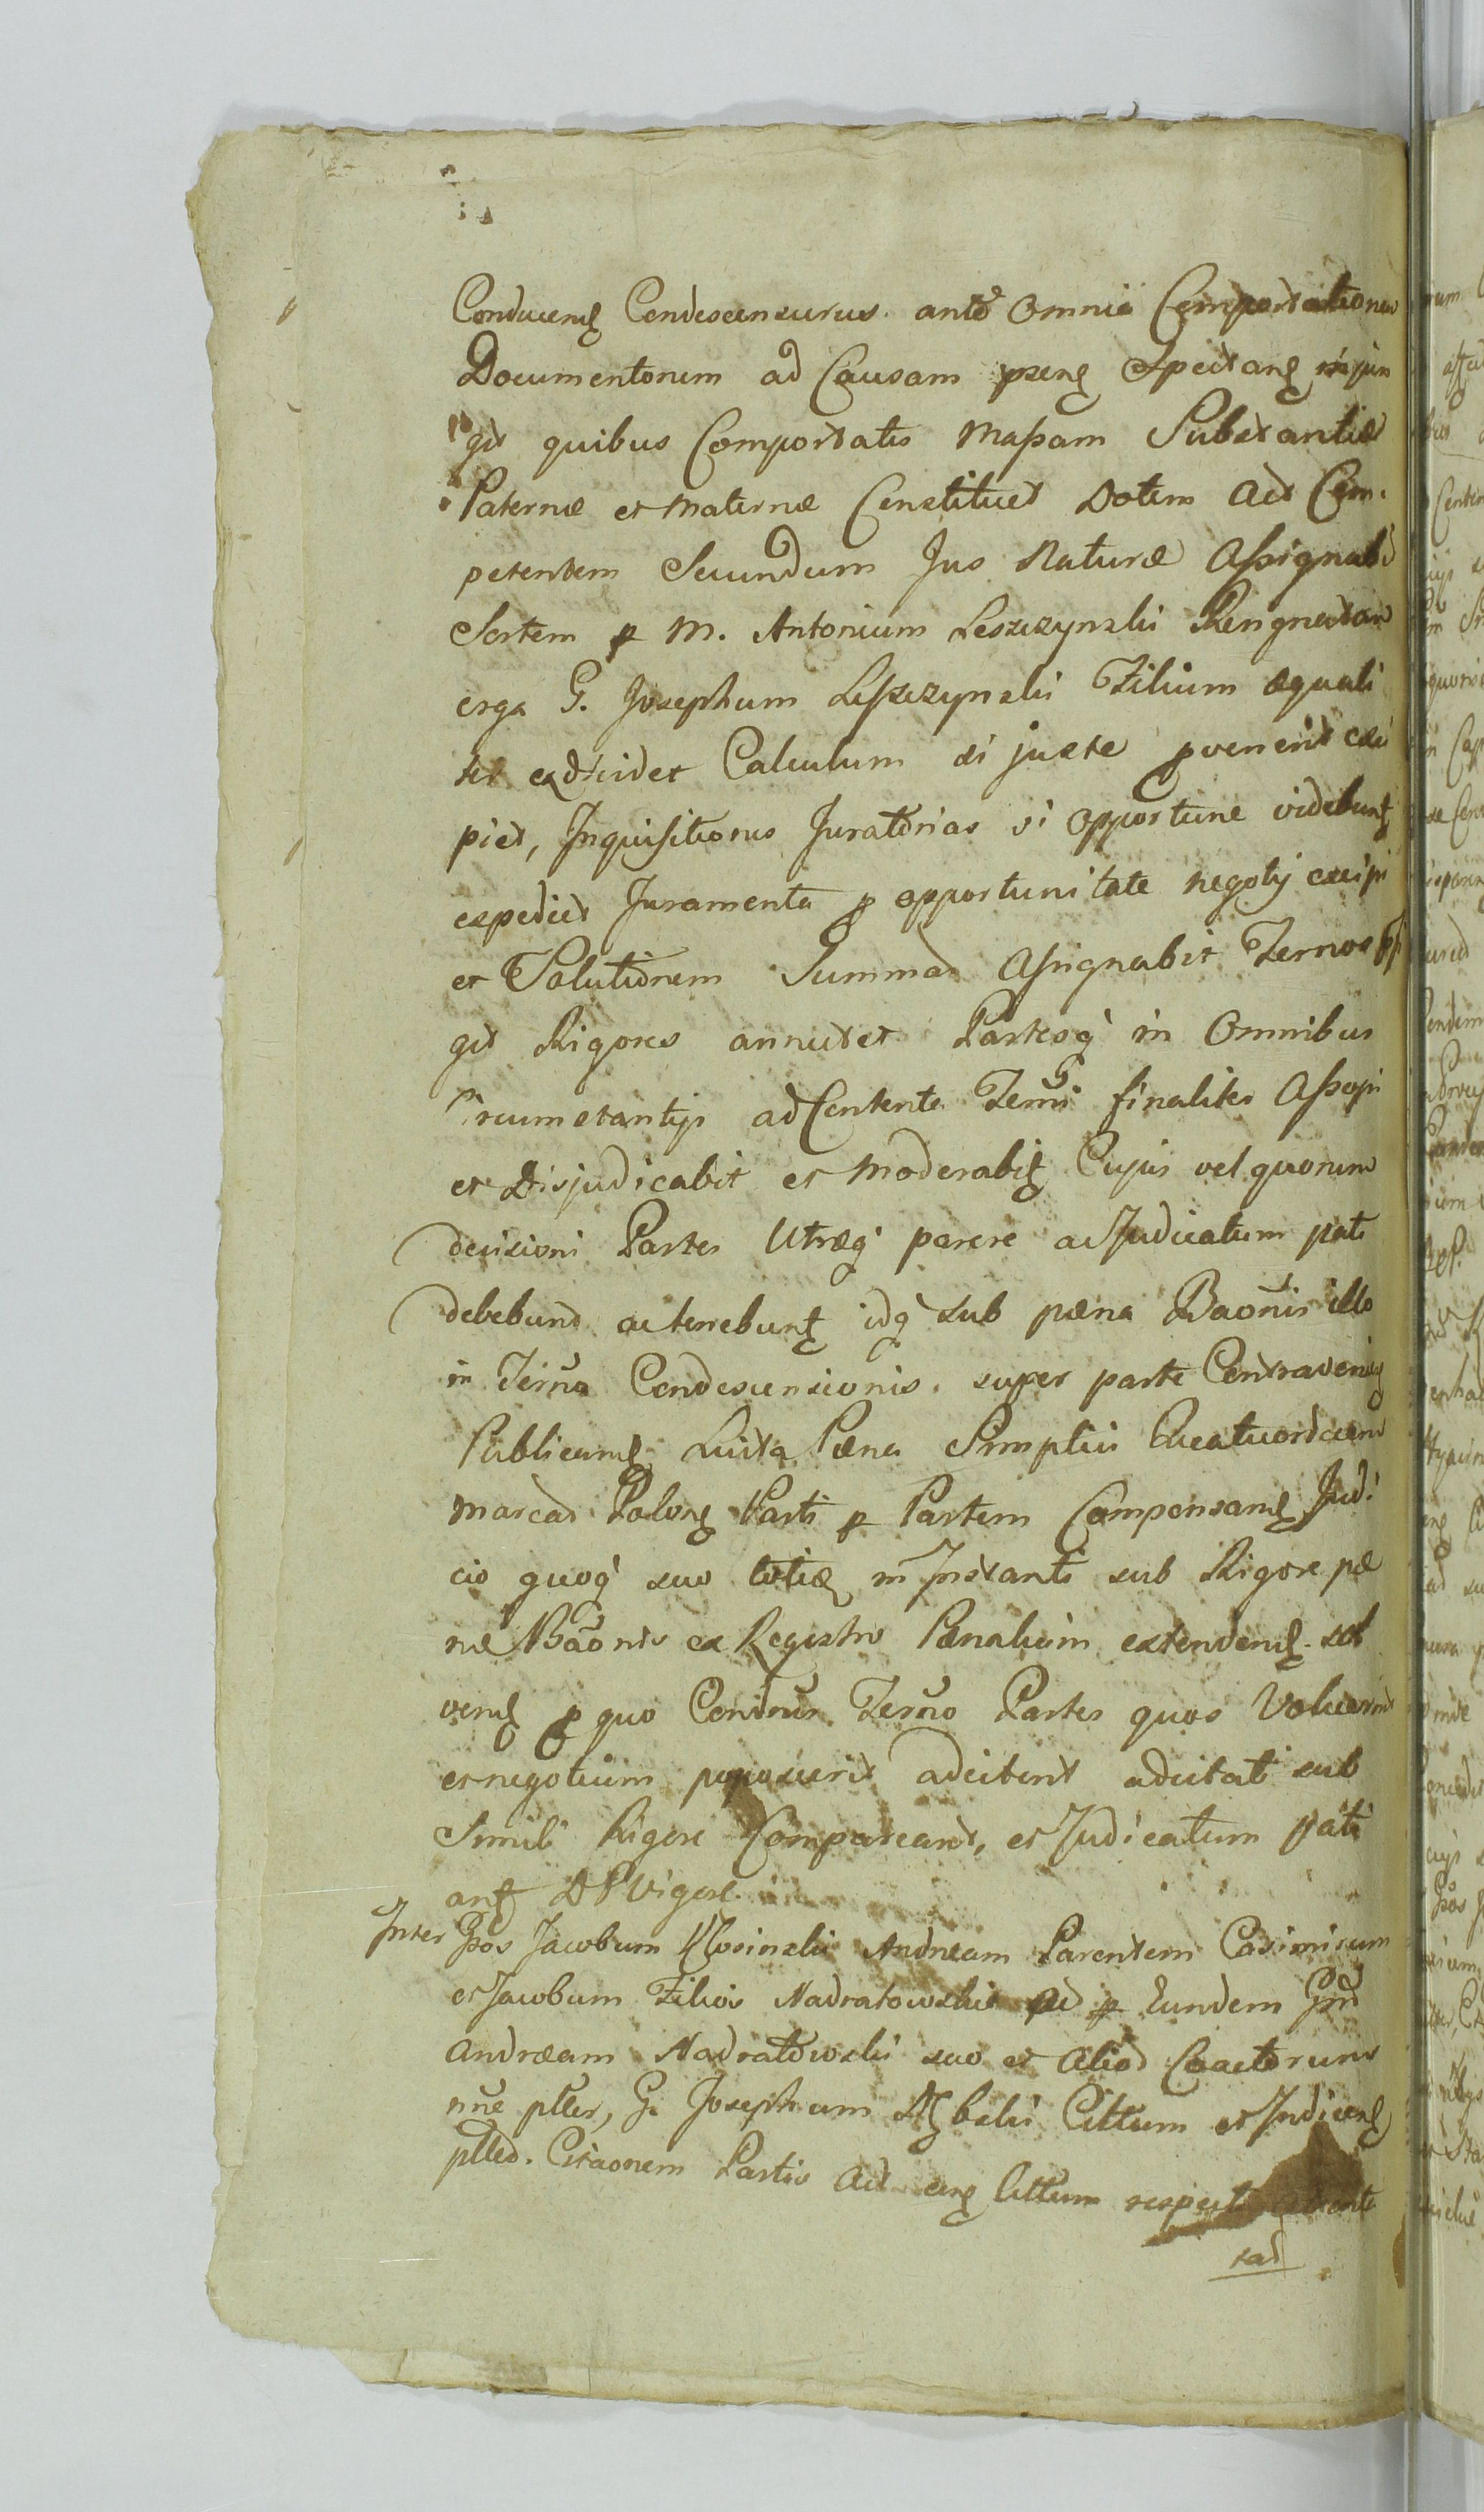 Conducenę Condescensurus. ante Omnia Comportationem
Documentorum ad Causam pseng Spectang injun
git quibus Comportatis Maßam Substantiæ
Paternæ et Maternæ Constituet Dotem Act Com.
petentem Secundum Jus Naturæ Aßignabit
Sortem p M. Antonium Leszczynski
erga G. Josephum Leszczynski Filium æquali
ter Calculum si juste pvenerit exci
piet, Inquisitiones Juratorias si opportune videbunt
expediet Juramenta p opportunitate negoty excipi
et Solutionem Summad Aßignabit Ternos
get Rigores annectet Partesq in Omnibus
Circumstantys ad Contenta Termi finaliter Aßopi
et Disjudicabit et Moderabit Cujus vel quorum
decisioni Partes Utræq parere ac Judicatum pati
debebunt ac tenebunt idq sub pæna Baonis illo
in Terno Condescensionis. super parte Contravenien
Publicanę Luita Pæna Simplici Quatuordecem
Marcar Polonę Parti p Partem Compensanę Judi
cio quoq suo in Instanti sub Rigore pæ
næ Baonis ex Registro Pænalium extendenę. sol
venę p quo Terno Partes quos Voluerint
et negotium poposcerit adcitent adcitati sub
Simili Rigore Compareant, et Judicatum pati
ant D P Vigore.
Inter Gsos Jacobum Klosinski Andream Parentem Casimirum
et Jacobum Filios Nadratowskie Act p Eundem Gsm
Andræam Nadratowski suo et Aliod Coactorum
nne pltes, G. Josephum Cittum et Indicenę
plted. Citaonem Partis Act eng Cittum respectu
tad